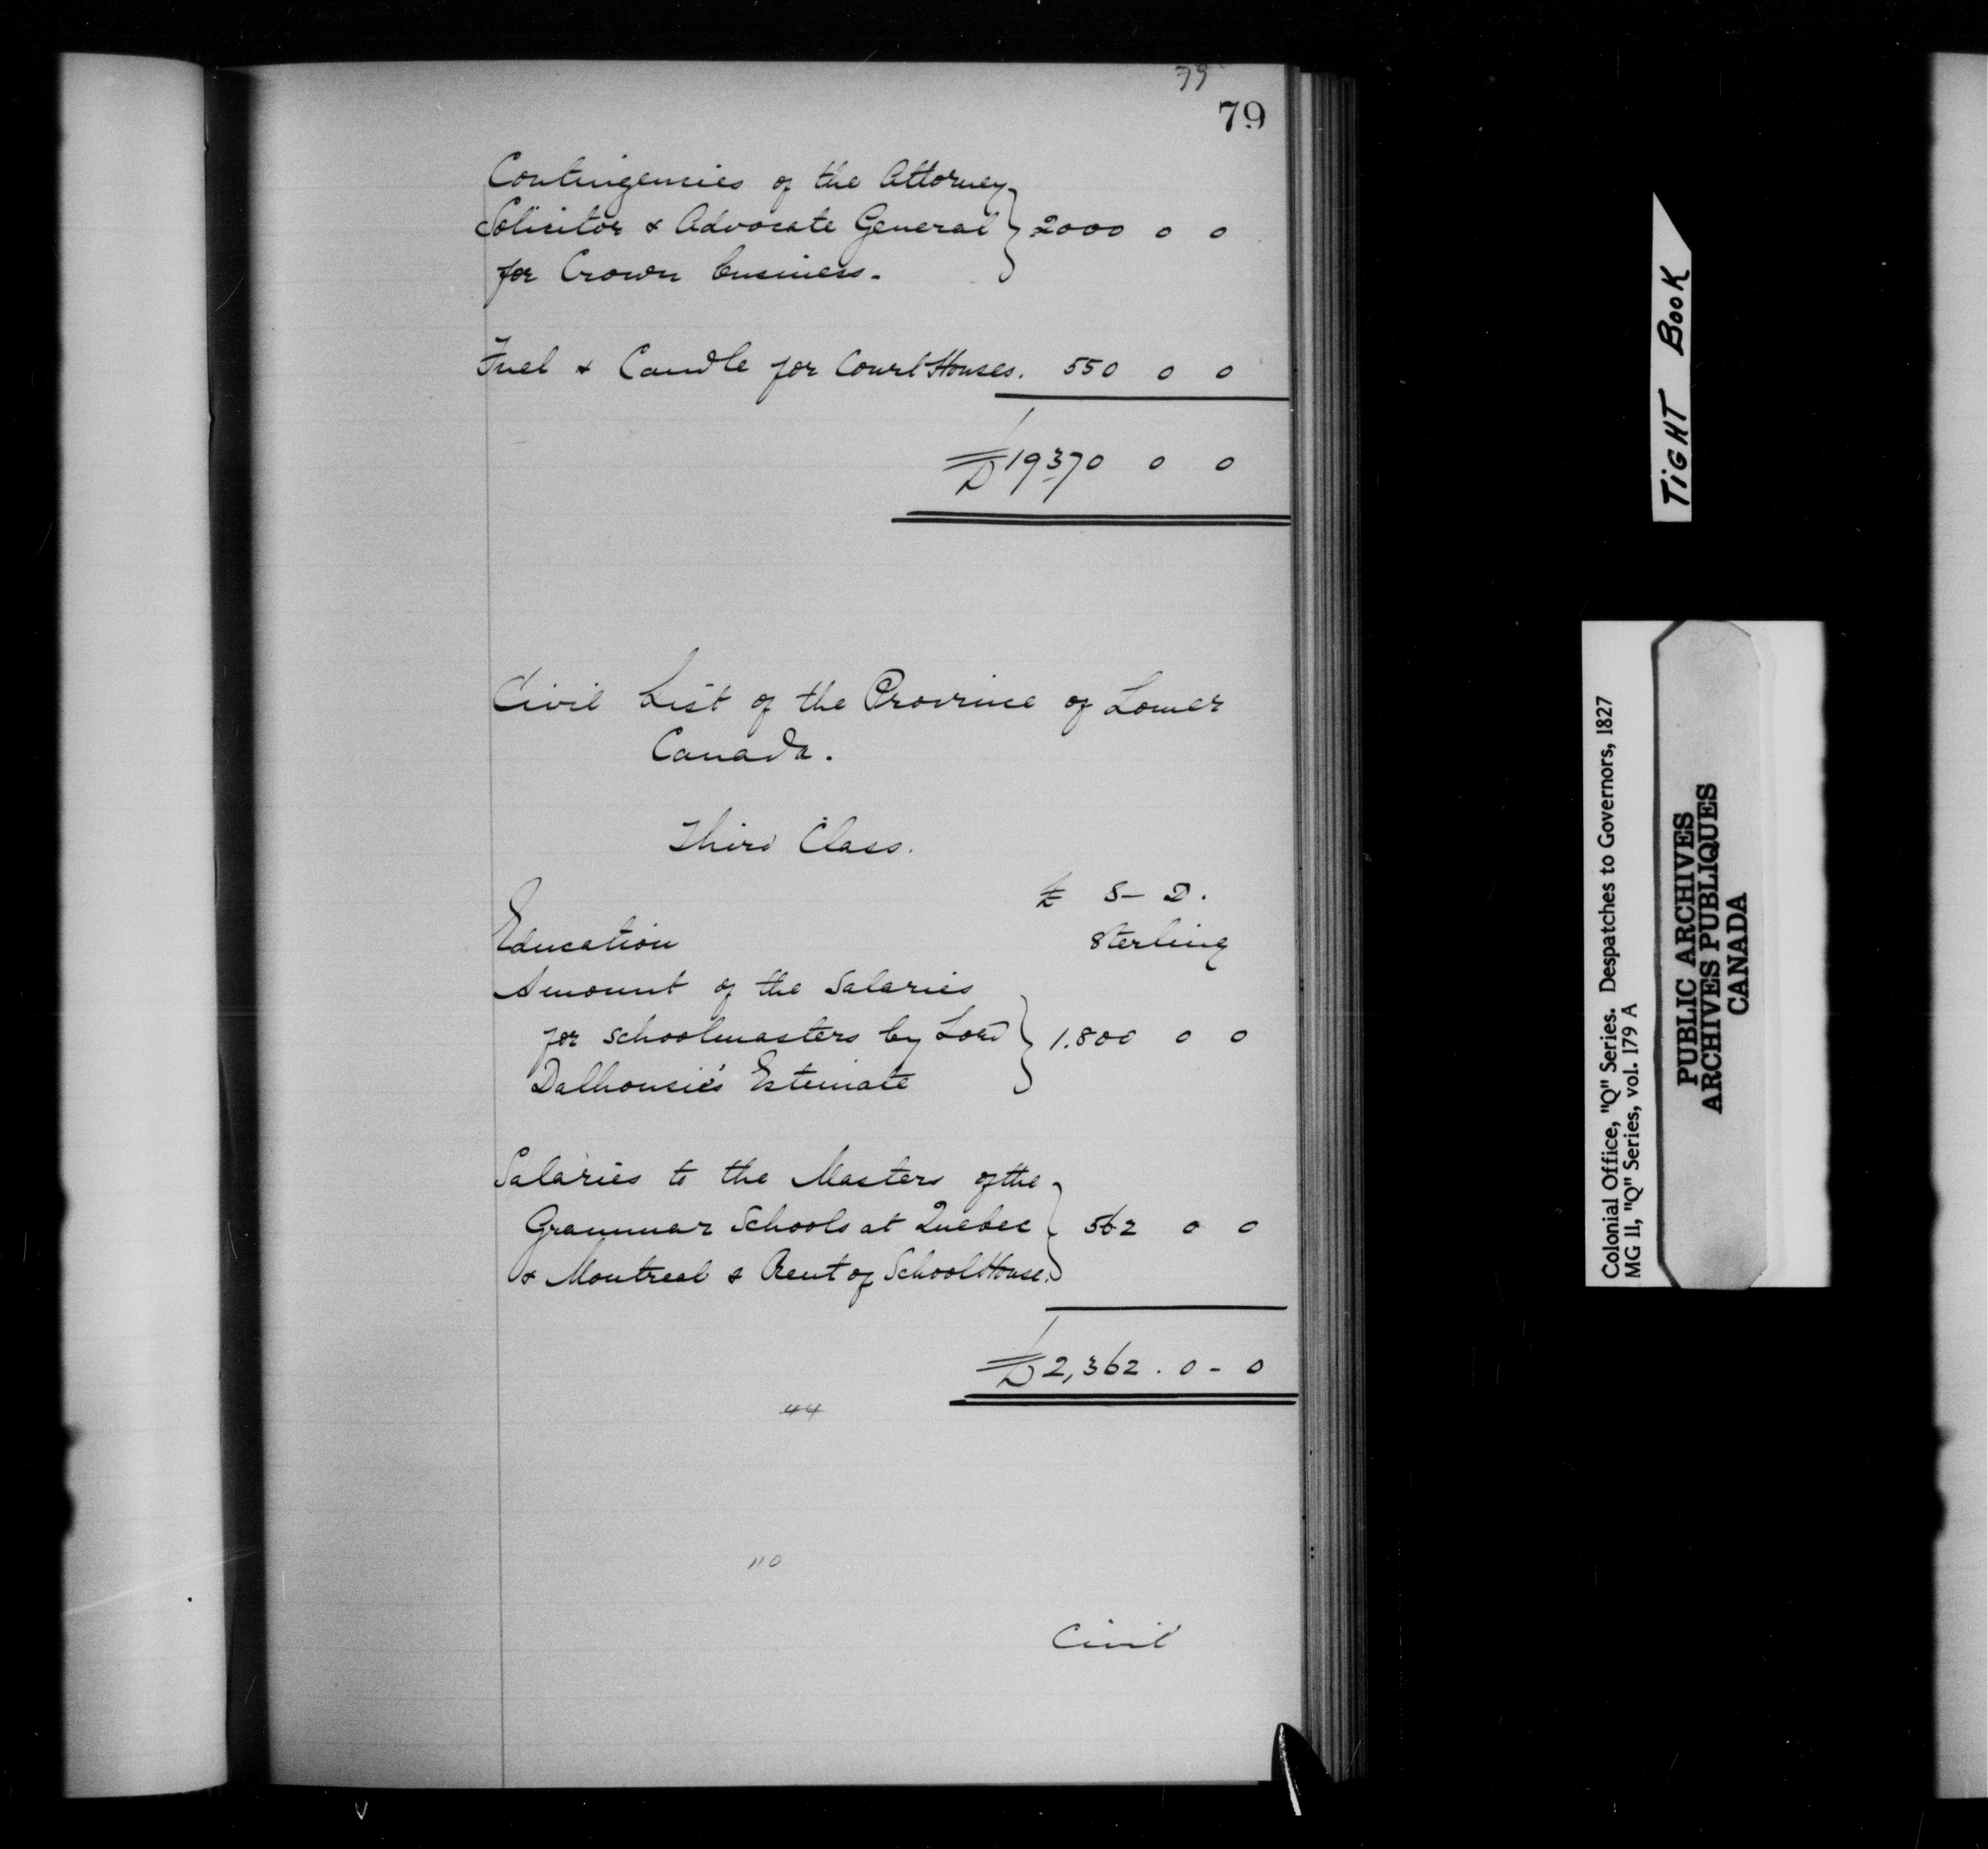 79
79
Contingencies of the Attorney
Solicitor & Advocate General } 2000 0 0
for Crown business.
Fuel & Candle for Court Houses. 550 0 0
£19370 0 0
Civil List of the Province of Lower
Canada.
Third Class.
£ S- D.
Education Sterling
Amount of the Salaries
for Schoolmasters by Lord } 1.800 0 0
Dalhousie's Estimate
Salaries to the Masters of the
Grammar Schools at Quebec } 562 0 0
& Montreal & Rent of School House.
£2,362. 0 - 0
44
110
Civil
TIGHT BOOK
Colonial Office, "Q" Series. Despatches to Governors, 1827
MG 11, "Q" Series, vol. 179 A
PUBLIC ARCHIVES
ARCHIVES PUBLIQUES
CANADA